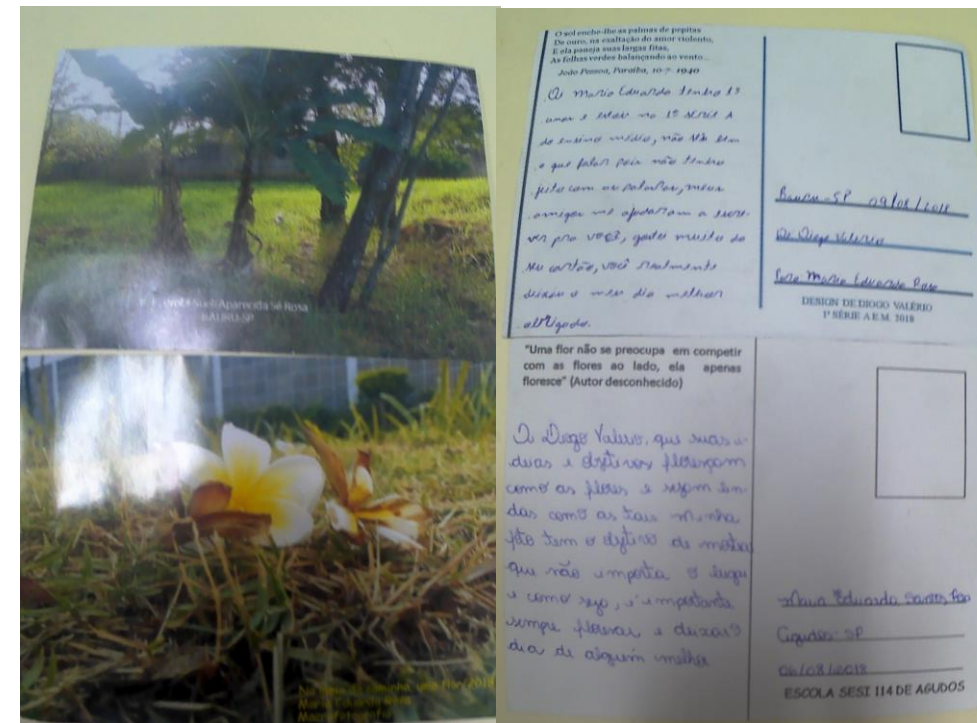 E. E. Profª Sueli Aparecida Sé Rosa
BAURU-SP
No meio do caminho, uma flor, 2018
Maria Eduarda
O sol enche-lhe as palmas de pepitas
De ouro, na exaltação do amor violento,
E ela paneja suas largas fitas,
As folhas verdes balançando ao vento...
João Pessoa, Paraíba, 10-7-1940
Oi Maria Eduarda tenho 15
anos e estou na 1ª série A
do ensino médio, não sei bem
o que falar pois não tenho
jeito com as palavras, meus
amigos me ajudaram a escre-
ver pra você, gostei muito do
seu cartão, você realmente
deixou o meu dia melhor
obrigado.
Bauru-SP 09/08/2018
De Diogo Valério
Para Maria Eduarda
DESIGN DE DIOGO VALÉRIO
1ª SÉRIE A E.M. 2018
"Uma flor não se preocupa em competir
com as flores ao lado, ela apenas
floresce" (Autor desconhecido)
Oi Diogo Valerio, que suas i-
deias e objetivos floresçam
como as flores e sejam lin-
das como as tais minha
foto tem o objetivo de mostrar
que não importa o lugar
e como seja, é importante
sempre florescer e deixar o
dia de alguém melhor
Maria Eduarda Santos
Agudos-SP
06/08/2018
ESCOLA SESI 114 DE AGUDOS